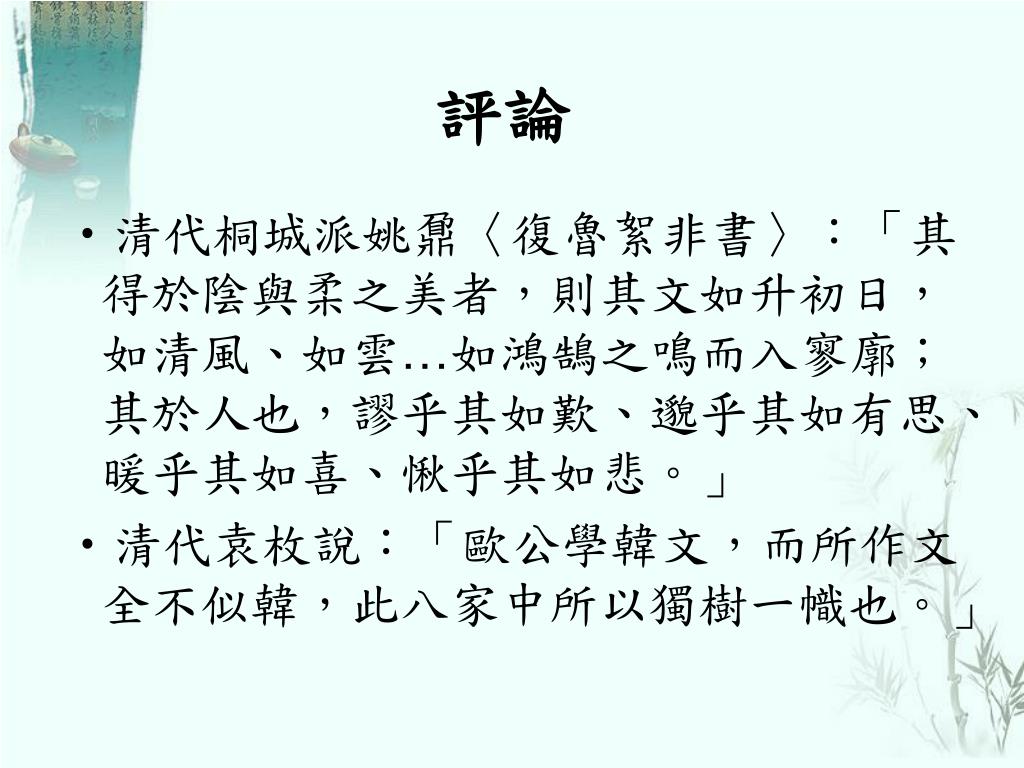 評論
•清代桐城派姚鼐〈復魯絮非書〉：「其
得於陰與柔之美者，則其文如升初日，
如清風、如雲…如鴻鵠之鳴而入寥廓；
其於人也，謬乎其如歎、邈乎其如有思、
暖乎其如喜、愀乎其如悲。」
•清代袁枚說：「歐公學韓文，而所作文
全不似韓，此八家中所以獨樹一幟也。」